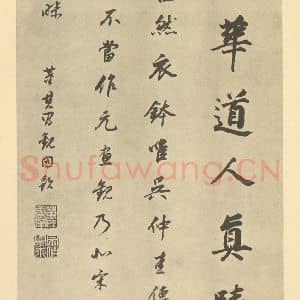 華道人真
然衣鉢唯吳仲圭
不當作元畫觀乃
董其昌觀因
Shufawang.CN